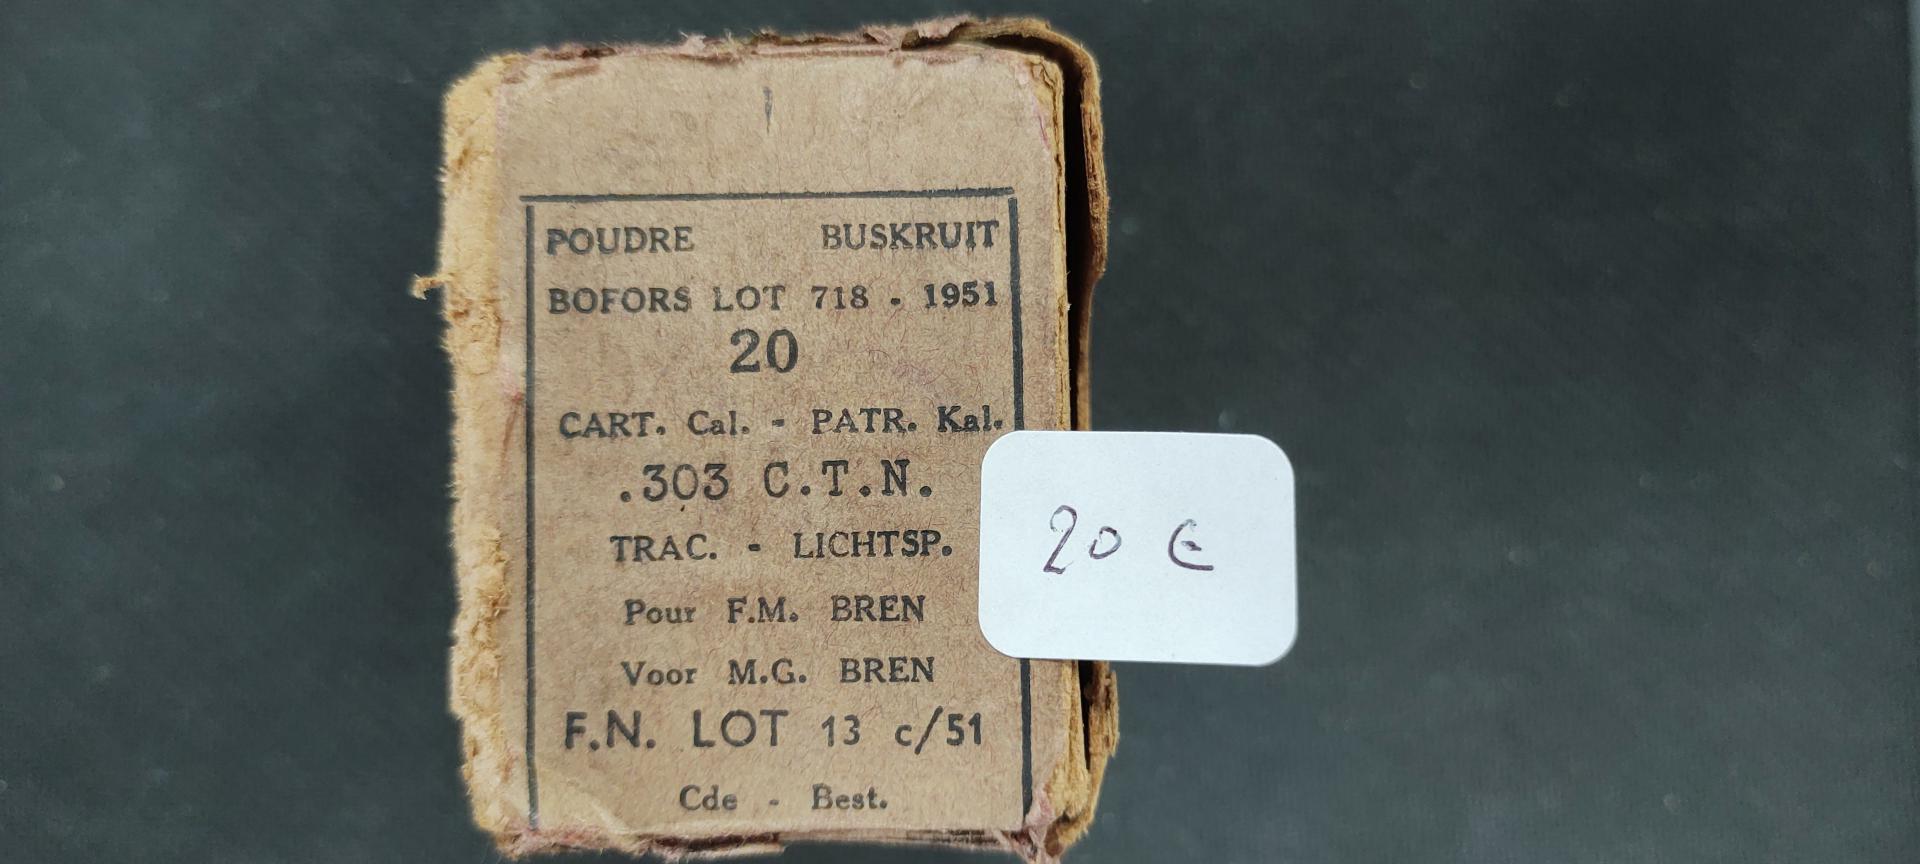 POUDRE BUSKRUIT
BOFORS LOT 718 - 1951
20
CART. Cal. - PATR. Kal.
.303 C.T.N.
TRAC. - LICHTSP.
Pour F.M. BREN
Voor M.G. BREN
F.N. LOT 13 c/51
Cde - Best.
20 €